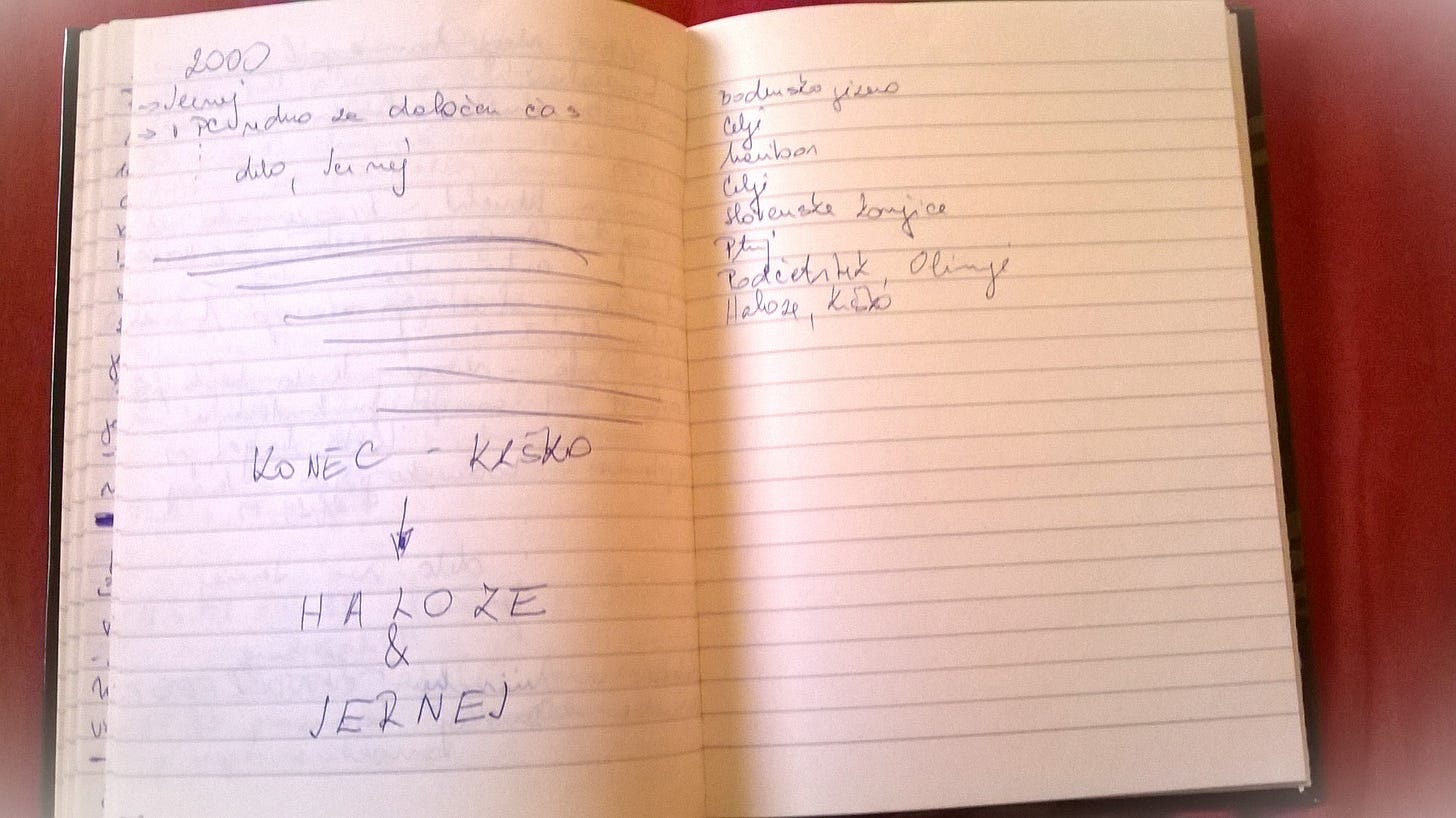 2000
→ Jernej
→ 1 za določen čas
delo, Jernej
KONEC - KRŠKO
↓
HALOZE
&
JERNEJ
Bodensko jezero
Celje
Maribor
Celje
Slovenske Konjice
Ptuj
Podčetrtek, Olimje
Haloze, Krško